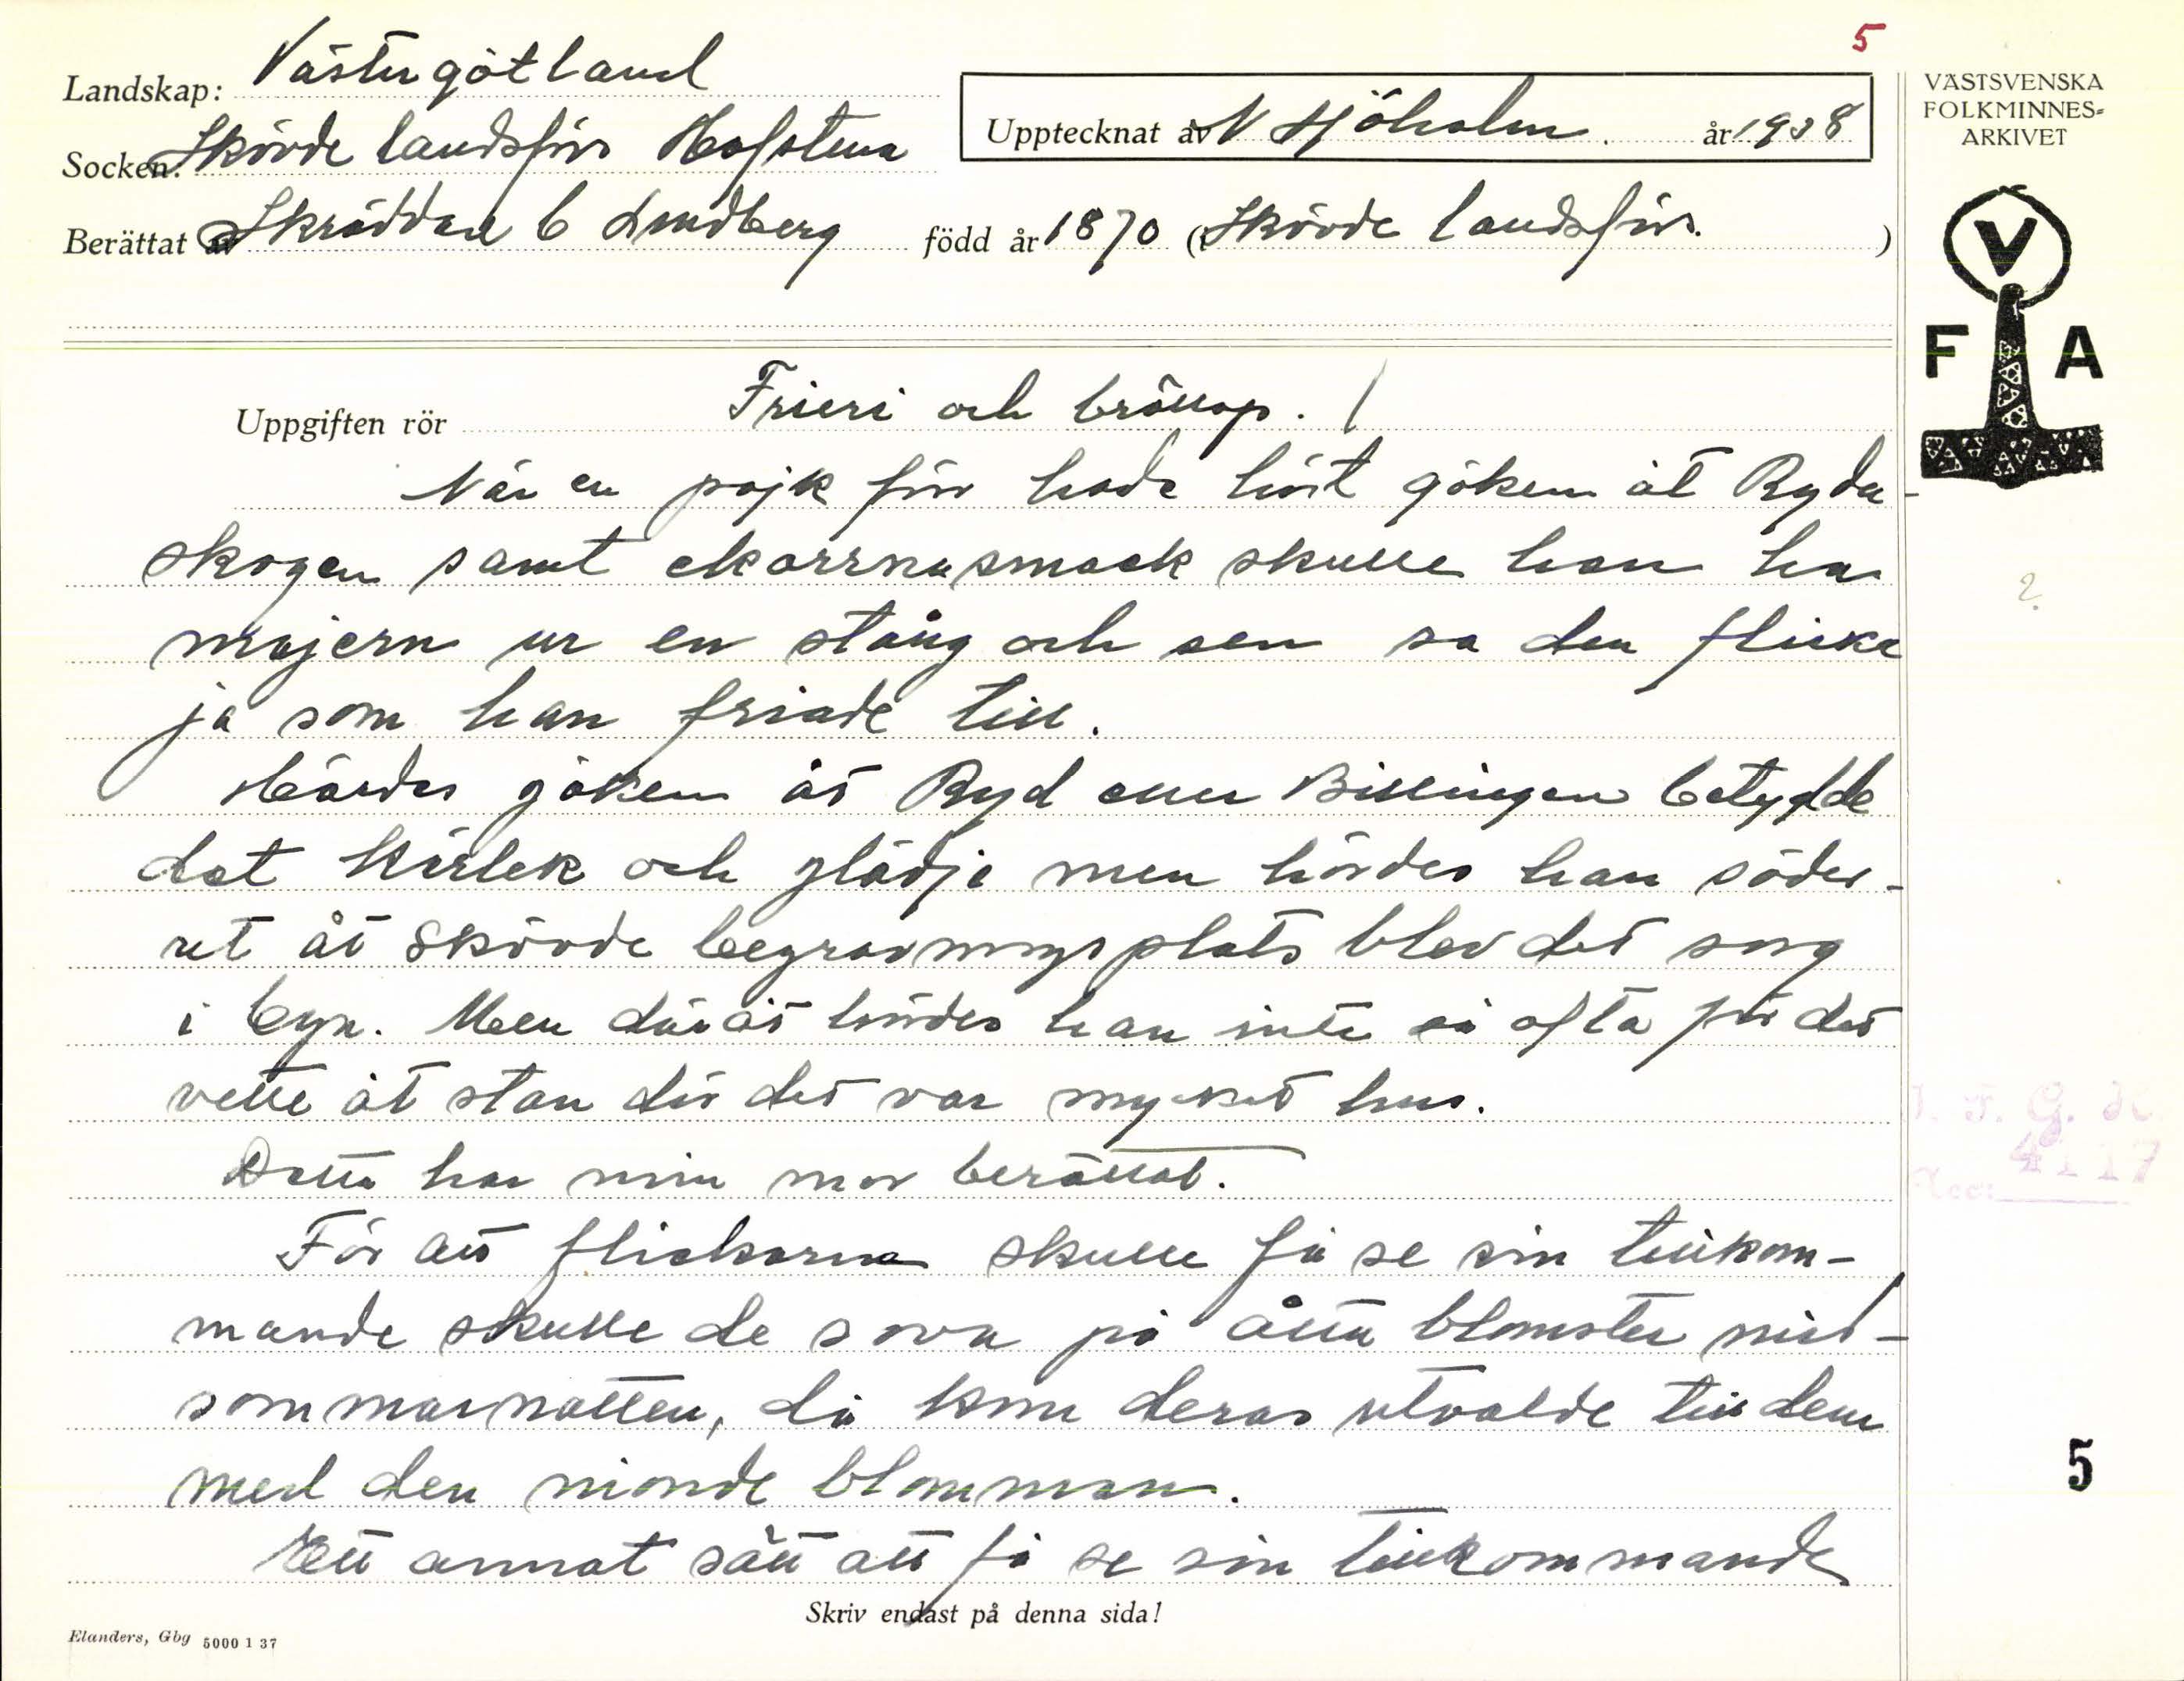 5
Landskap: Västergötland
Socken: Skövde landsförs Hafstena
Upptecknat av N Hjöholm. år 1938
Berättat av Skräddare C Lundberg född år 1870 (i Skövde landsförs. )
VÄSTSVENSKA
FOLKMINNES=
ARKIVET
V
F A
Uppgiften rör Frieri och bröllop.
När en pojk förr hade hört göken åt Ryda-
skogen samt ekorrnasmack skulle han ha
majern ur en stång och sen sa den flicka
ja som han friade till.
Hördes göken åt Ryd eller Billingen betydde
det kärlek och glädje men hördes han söder-
ut åt Skövde begravningsplats blev det sorg
i byn. Men däråt hördes han inte så ofta för det
vette åt stan där det var mycket hus.
Detta har min mor berättat.
För att flickorna skulle få se sin tillkom-
mande skulle de sova på åtta blomster mid-
sommarnatten, då kom deras utvalde till dem
med den nionde blomman.
Ett annat sätt att få se sin tillkommande
?
4117
5
Skriv endast på denna sida!
Elanders, Gbg 5000 1 37